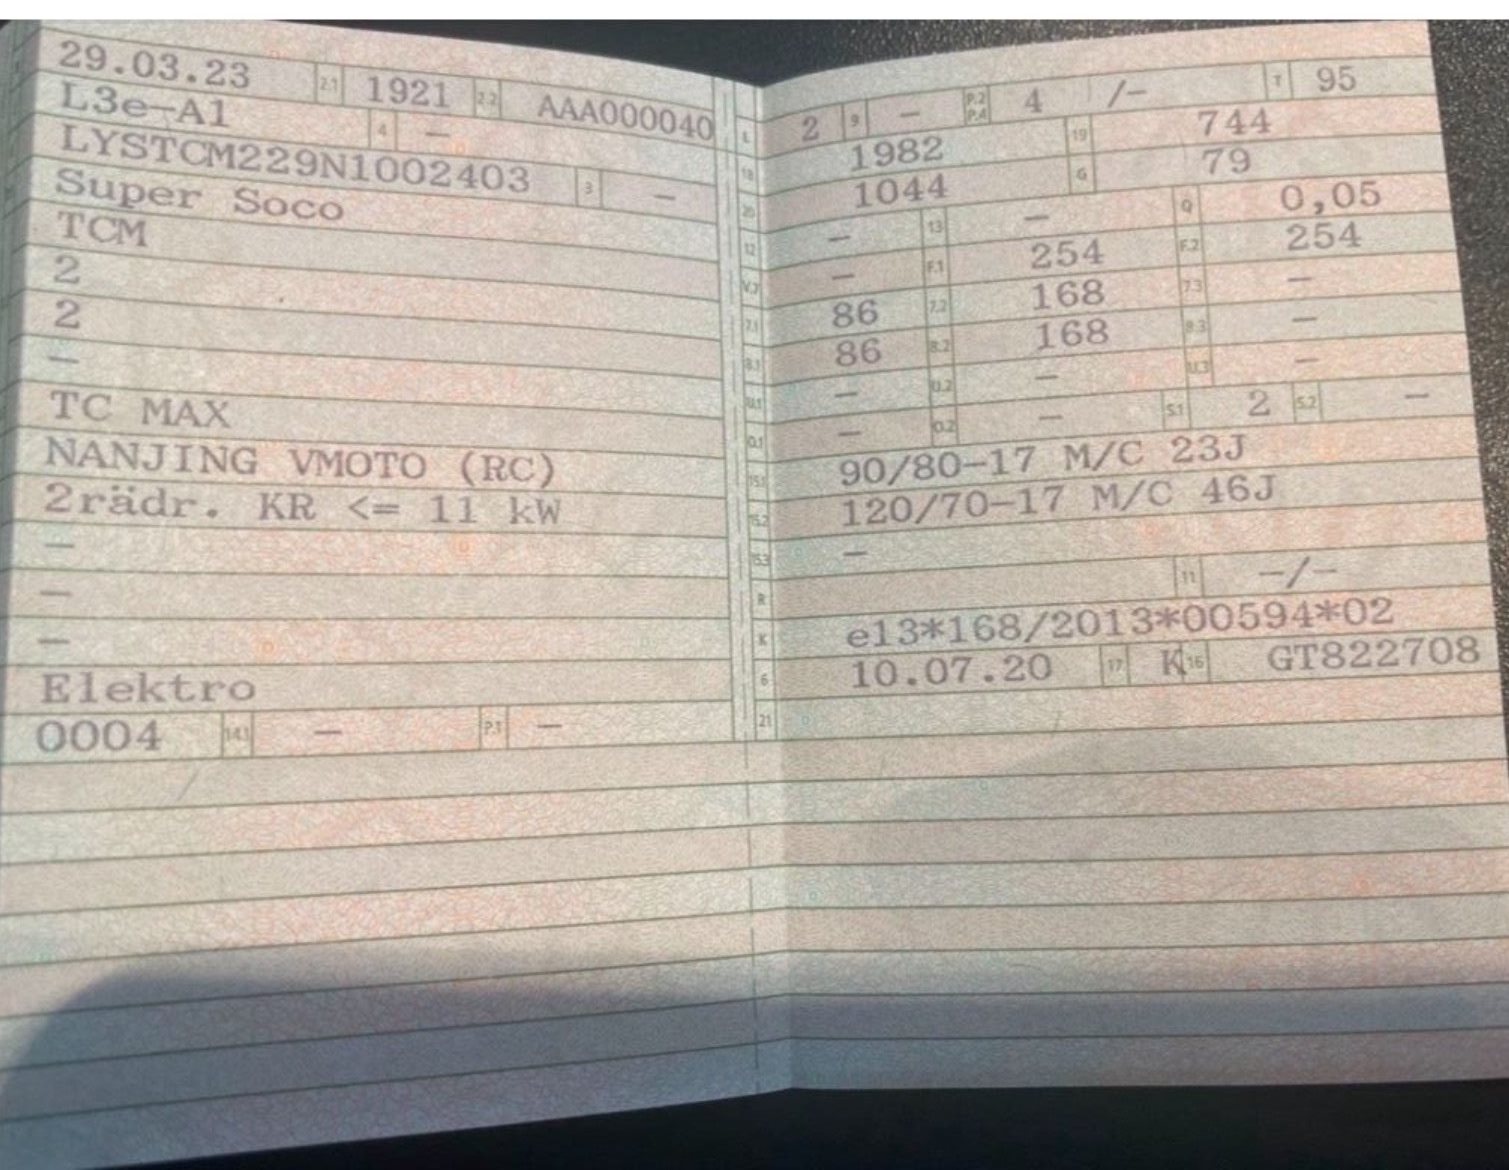 29.03.23 2.1 1921 2.2 AAA000040
L3e-A1 4 -
LYSTCM229N1002403 3 -
Super Soco
TCM
2
2
-
TC MAX
NANJING VMOTO (RC)
2rädr. KR <= 11 kW
-
-
-
Elektro
0004 14.1 - P.1 -
L 2 9 - P.2 P.4 4 /- T 95
18 1982 19 744
20 1044 G 79
12 - 13 - Q 0,05
V.7 - F.1 254 F.2 254
7.1 86 7.2 168 7.3 -
8.1 86 8.2 168 8.3 -
U.1 - U.2 - U.3 -
O.1 - O.2 - S.1 2 S.2 -
15.1 90/80-17 M/C 23J
15.2 120/70-17 M/C 46J
15.3 -
R 11 -/-
K e13*168/2013*00594*02
6 10.07.20 17 K 16 GT822708
21